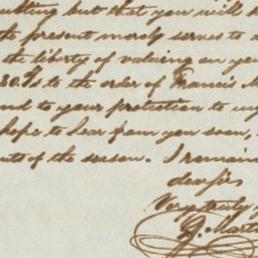 but that you will
the present merely serves to
the liberty of valuing on you
30.7s to the order of Francis M
and to your protection to
hope to hear from you soon,
of the season. I remain
dear sir
Very truly y
J. Mart